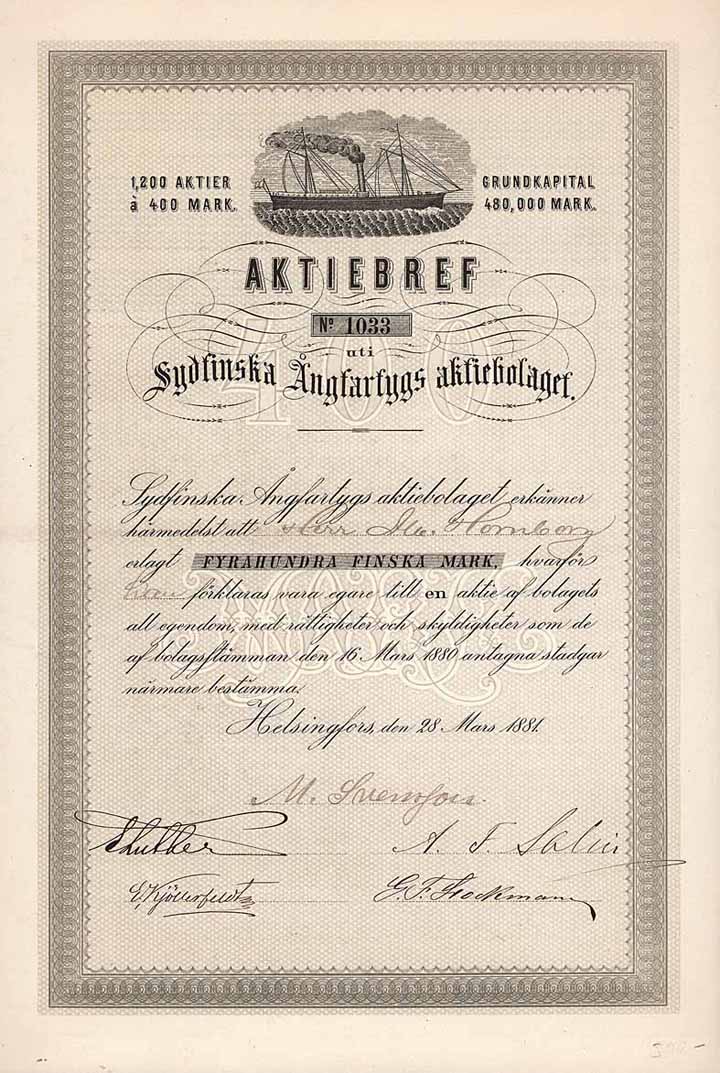 1,200 AKTIER
à 400 MARK.
GRUNDKAPITAL
480,000 MARK.
AKTIEBREF
Nº 1033
uti
400
Sydfinska Ångfartygs aktiebolaget.
Sydfinska Ångfartygs aktiebolaget erkänner
härmedelst att Herr Hornborg
erlagt FYRAHUNDRA FINSKA MARK, hvarför
han förklaras vara egare till en aktie af bolagets
all egendom, med rättigheter och skyldigheter som de
af bolagsstämman den 16 Mars 1880 antagna stadgar
närmare bestämma.
Helsingfors, den 28 Mars 1881.
M. Svensson.
A. F. Salin
E. Kjöllerfeldt
G. F. Stockmann